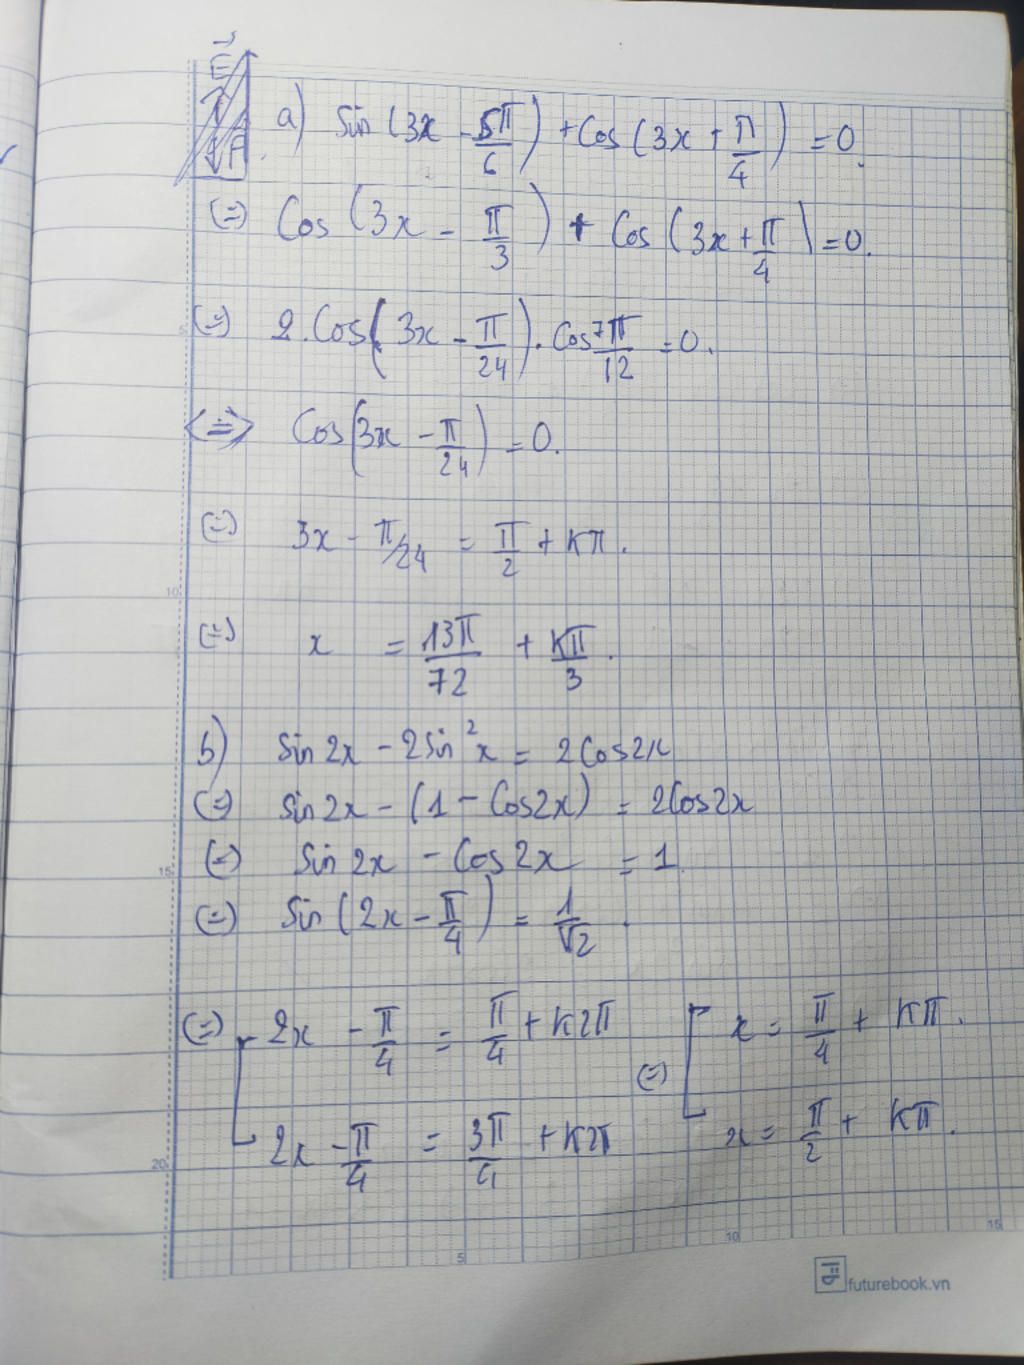 a) Sin (3x - 5π/6) + Cos (3x + π/4) = 0.
(=) Cos (3x - π/3) + Cos (3x + π/4) = 0.
(=) 2. Cos(3x - π/24). Cos 7π/12 = 0.
<=> Cos(3x - π/24) = 0.
(=) 3x - π/24 = π/2 + kπ.
(=) x = 13π/72 + kπ/3.
b) Sin 2x - 2 Sin²x = 2 Cos 2x
(=) Sin 2x - (1 - Cos2x) = 2Cos 2x
(=) Sin 2x - Cos 2x = 1
(=) Sin (2x - π/4) = 1/√2.
(=) [ 2x - π/4 = π/4 + k2π (=) [ x = π/4 + kπ.
2x - π/4 = 3π/4 + k2π x = π/2 + kπ.
5
10
15
20
5
10
15
futurebook.vn